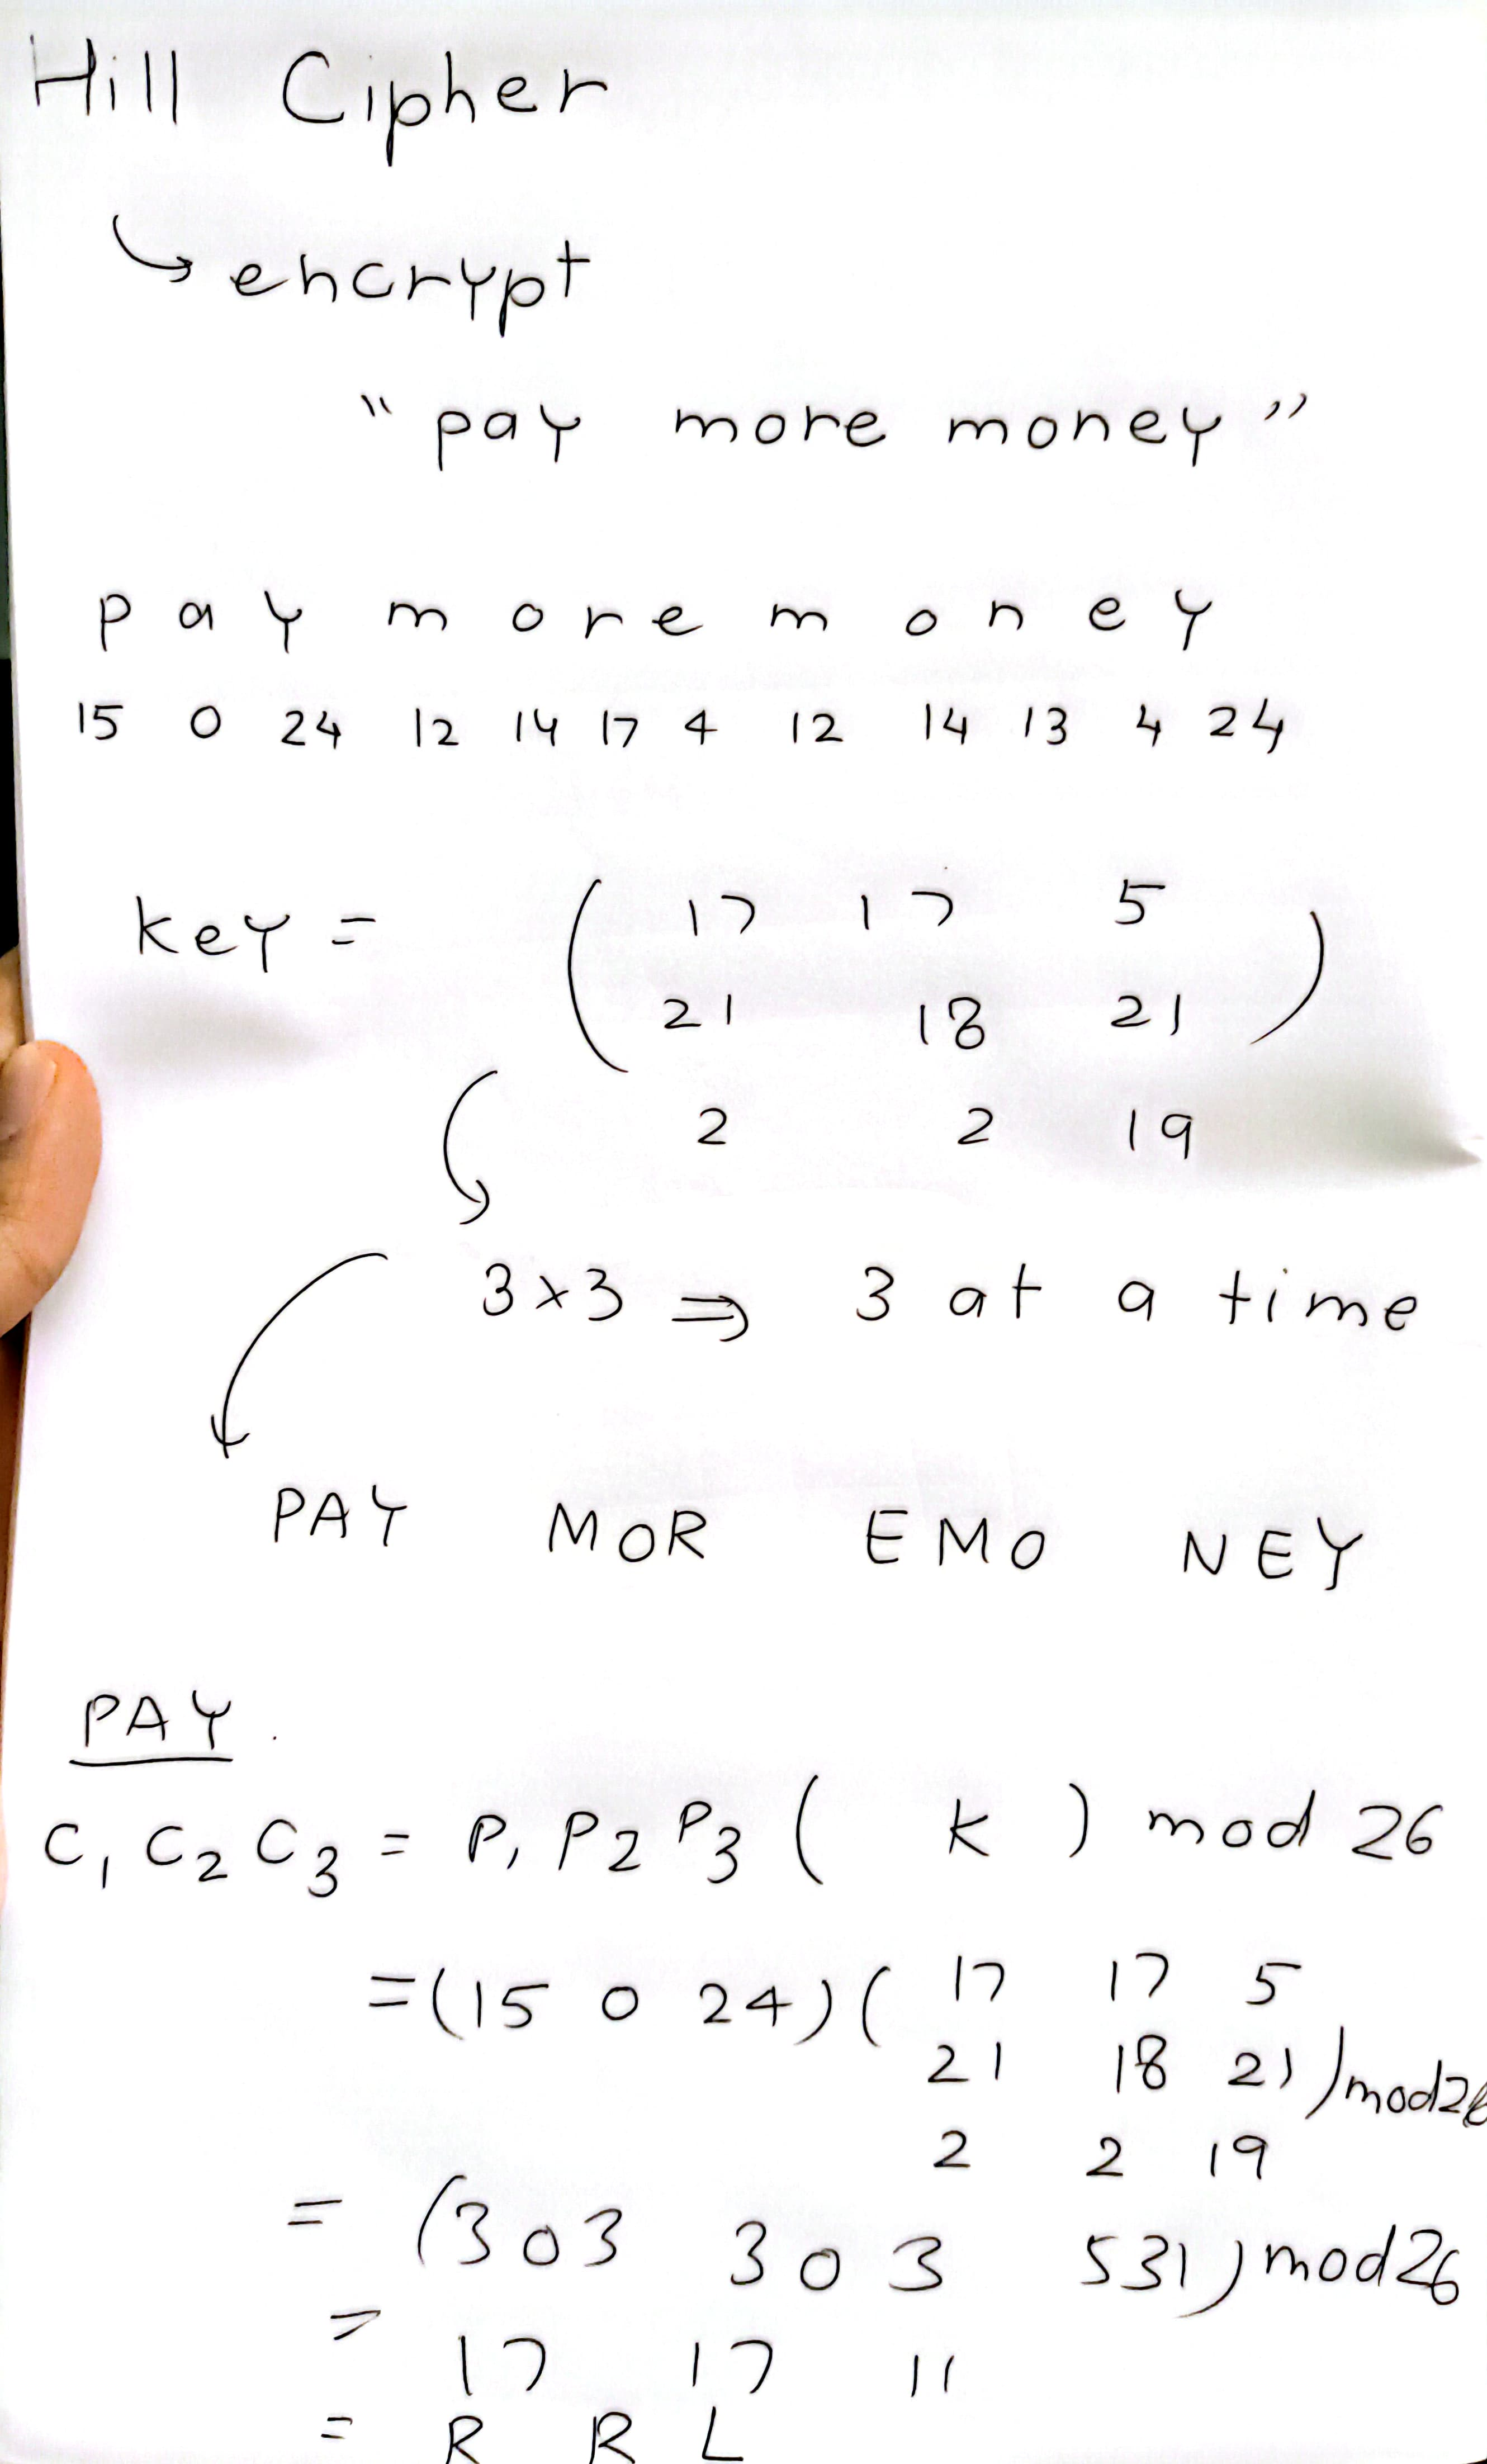 Hill Cipher
↳ encrypt
"pay more money"
p a y m o r e m o n e y
15 0 24 12 14 17 4 12 14 13 4 24
key = ( 17 17 5
21 18 21 )
2 2 19
3×3 ⇒ 3 at a time
PAY MOR EMO NEY
PAY
C₁ C₂ C₃ = P₁ P₂ P₃ ( k ) mod 26
= (15 0 24) ( 17 17 5
21 18 21 ) mod 26
2 2 19
= (303 303 531) mod 26
= 17 17 11
= R R L